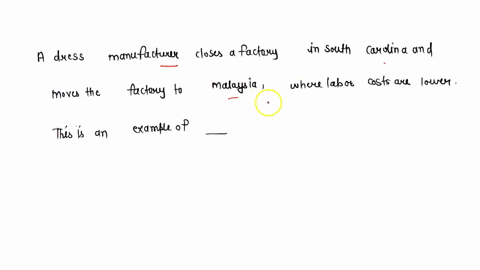 A dress manufacturer closes a factory in south carolina and
moves the factory to malaysia, where labor costs are lower.
This is an example of ___